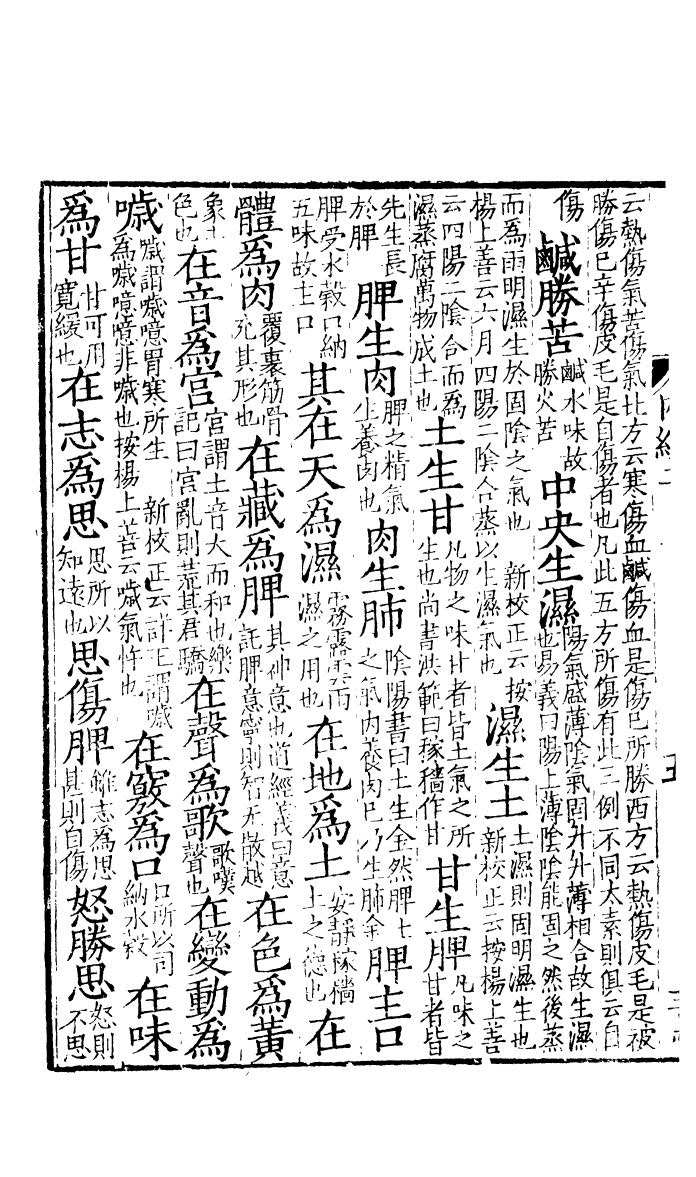 云熱傷氣苦傷氣北方云寒傷血鹹傷血是傷已所勝西方云熱傷皮毛是被
勝傷已辛傷皮毛是自傷者也凡此五方所傷有此三例不同太素則俱云自
傷 鹹勝苦 鹹水味故勝火苦 中央生濕 陽氣盛薄陰氣固升升薄相合故生濕也易義曰陽上薄陰陰能固之然後蒸
而爲雨明濕生於固陰之氣也 新校正云按楊上善云六月四陽二陰合蒸以生濕氣也 濕生土 土濕則固明濕生也 新校正云按楊上善
云四陽二陰合而爲濕蒸腐萬物成土也 土生甘 凡物之味甘者皆土氣之所生也尚書洪範曰稼穡作甘 甘生脾 凡味之甘者皆
先生長於脾 脾生肉 脾之精氣生養肉也 肉生肺 陰陽書曰土生金然脾土之氣內養肉已乃生肺金 脾主口
脾受水穀口納五味故主口 其在天爲濕 霧露雲雨濕之用也 在地爲土 安靜稼穡土之德也 在
體爲肉 覆裹筋骨充其形也 在藏爲脾 其神意也道經義曰意託脾意寧則智无散越 在色爲黃
象土色也 在音爲宮 宮謂土音大而和也樂記曰宮亂則荒其君驕 在聲爲歌 歌嘆聲也 在變動爲
噦 噦謂噦噫胃寒所生 新校正云詳王謂噦爲噦噫噫非噦也按楊上善云噦氣忤也 在竅爲口 口所以司納水穀 在味
爲甘 甘可用寬緩也 在志爲思 思所以知遠也 思傷脾 雖志爲思甚則自傷 怒勝思 怒則不思